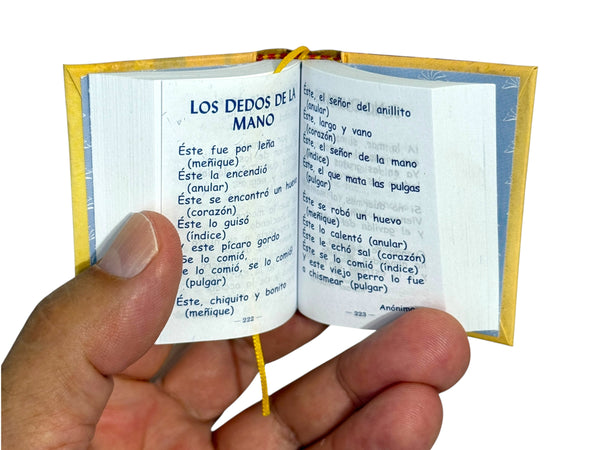 LOS DEDOS DE LA
MANO
Éste fue por leña
(meñique)
Éste la encendió
(anular)
Éste se encontró un huevo
(corazón)
Éste lo guisó
(índice)
Y este pícaro gordo
Se lo comió,
se lo comió, se lo comió
(pulgar)
Éste, chiquito y bonito
(meñique)
— 222 —
Éste, el señor del anillito
(anular)
Éste, largo y vano
(corazón)
Éste, el señor de la mano
(índice)
Éste, el que mata las pulgas
(pulgar)
Éste se robó un huevo
(meñique)
Éste lo calentó (anular)
Éste le echó sal (corazón)
Éste se lo comió (índice)
y este viejo perro lo fue
a chismear (pulgar)
Anónimo
— 223 —